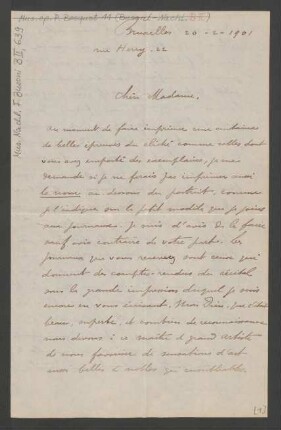 Mus. ep. F. Busoni 11 (Busoni-Nachl. B II)
Mus. Nachl. F. Busoni B II, 639
Bruxelles 20-2-1901
rue Henry, 22
Chère Madame.
Au moment de faire imprimer une
de belles épreuves du cliché comme celles dont
vous avez emporté des exemplaires, je me
demande si je ne ferais pas imprimer aussi
le nom au dessous du portrait, comme
je l'indique sur le petit modèle que je joins
aux journaux. Je suis d'avis de le faire
sauf avis contraire de votre part. Les
journaux que vous recevrez sont ceux qui
donnent des comptes-rendus du récital
sous la grande impression duquel je suis
encore en vous écrivant. Mon Dieu, que c'était
beau, superbe, et combien de reconnaissance
nous devons à ce maître & grand artiste
de nous favoriser de sensations d'art
aussi belles & nobles qui
(1)